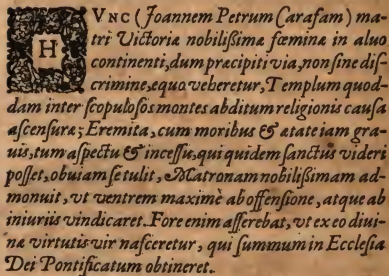 HVNC (Joannem Petrum Carafam) ma-
tri Victoriæ nobilißimæ fœminæ in aluo
continenti, dum præcipiti via, non sine di-
scrimine, equo veheretur, Templum quod-
dam inter scopulosos montes abditum religionis causa
ascensuræ; Eremita, cum moribus & ætate iam gra-
uis, tum aspectu & incessu, qui quidem sanctus videri
posset, obuiam se tulit, Matronam nobilißimam ad-
monuit, vt ventrem maximè ab offensione, atque ab
iniuriis vindicaret. Fore enim asserebat, vt ex eo diui-
næ virtutis vir nasceretur, qui summum in Ecclesia
Dei Pontificatum obtineret.